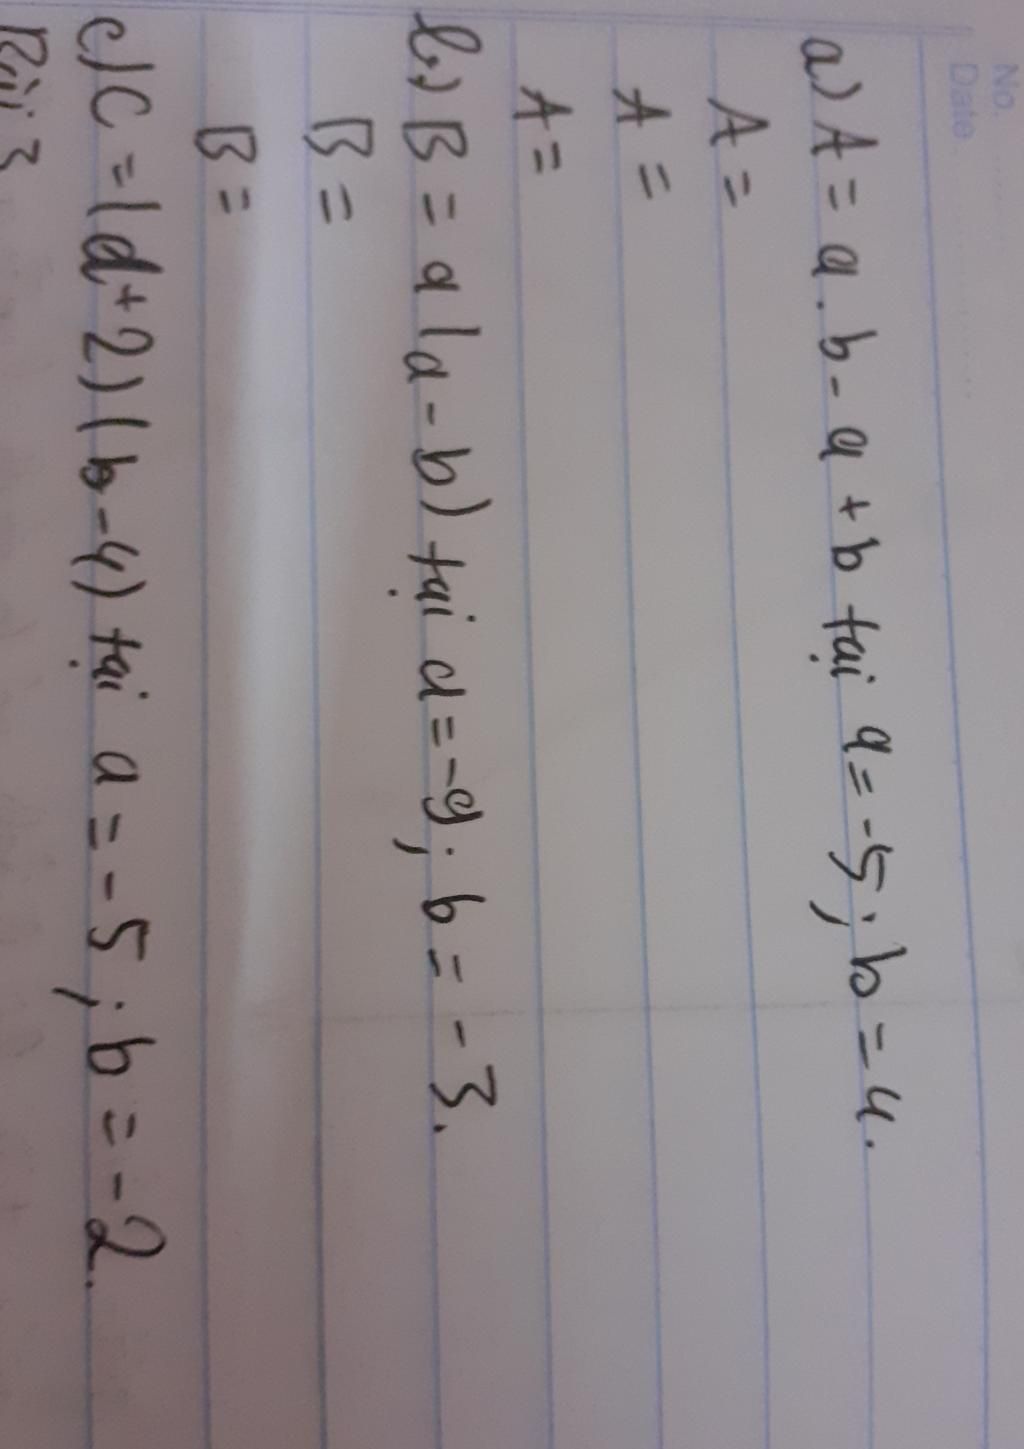 No.
Date
a) A = a . b - a + b tại a = -5 ; b = 4.
A =
A =
A =
b) B = a (a - b) tại a = -9 ; b = -3.
B =
B =
c) C = (a + 2) (b - 4) tại a = -5 ; b = -2.
Bài 3